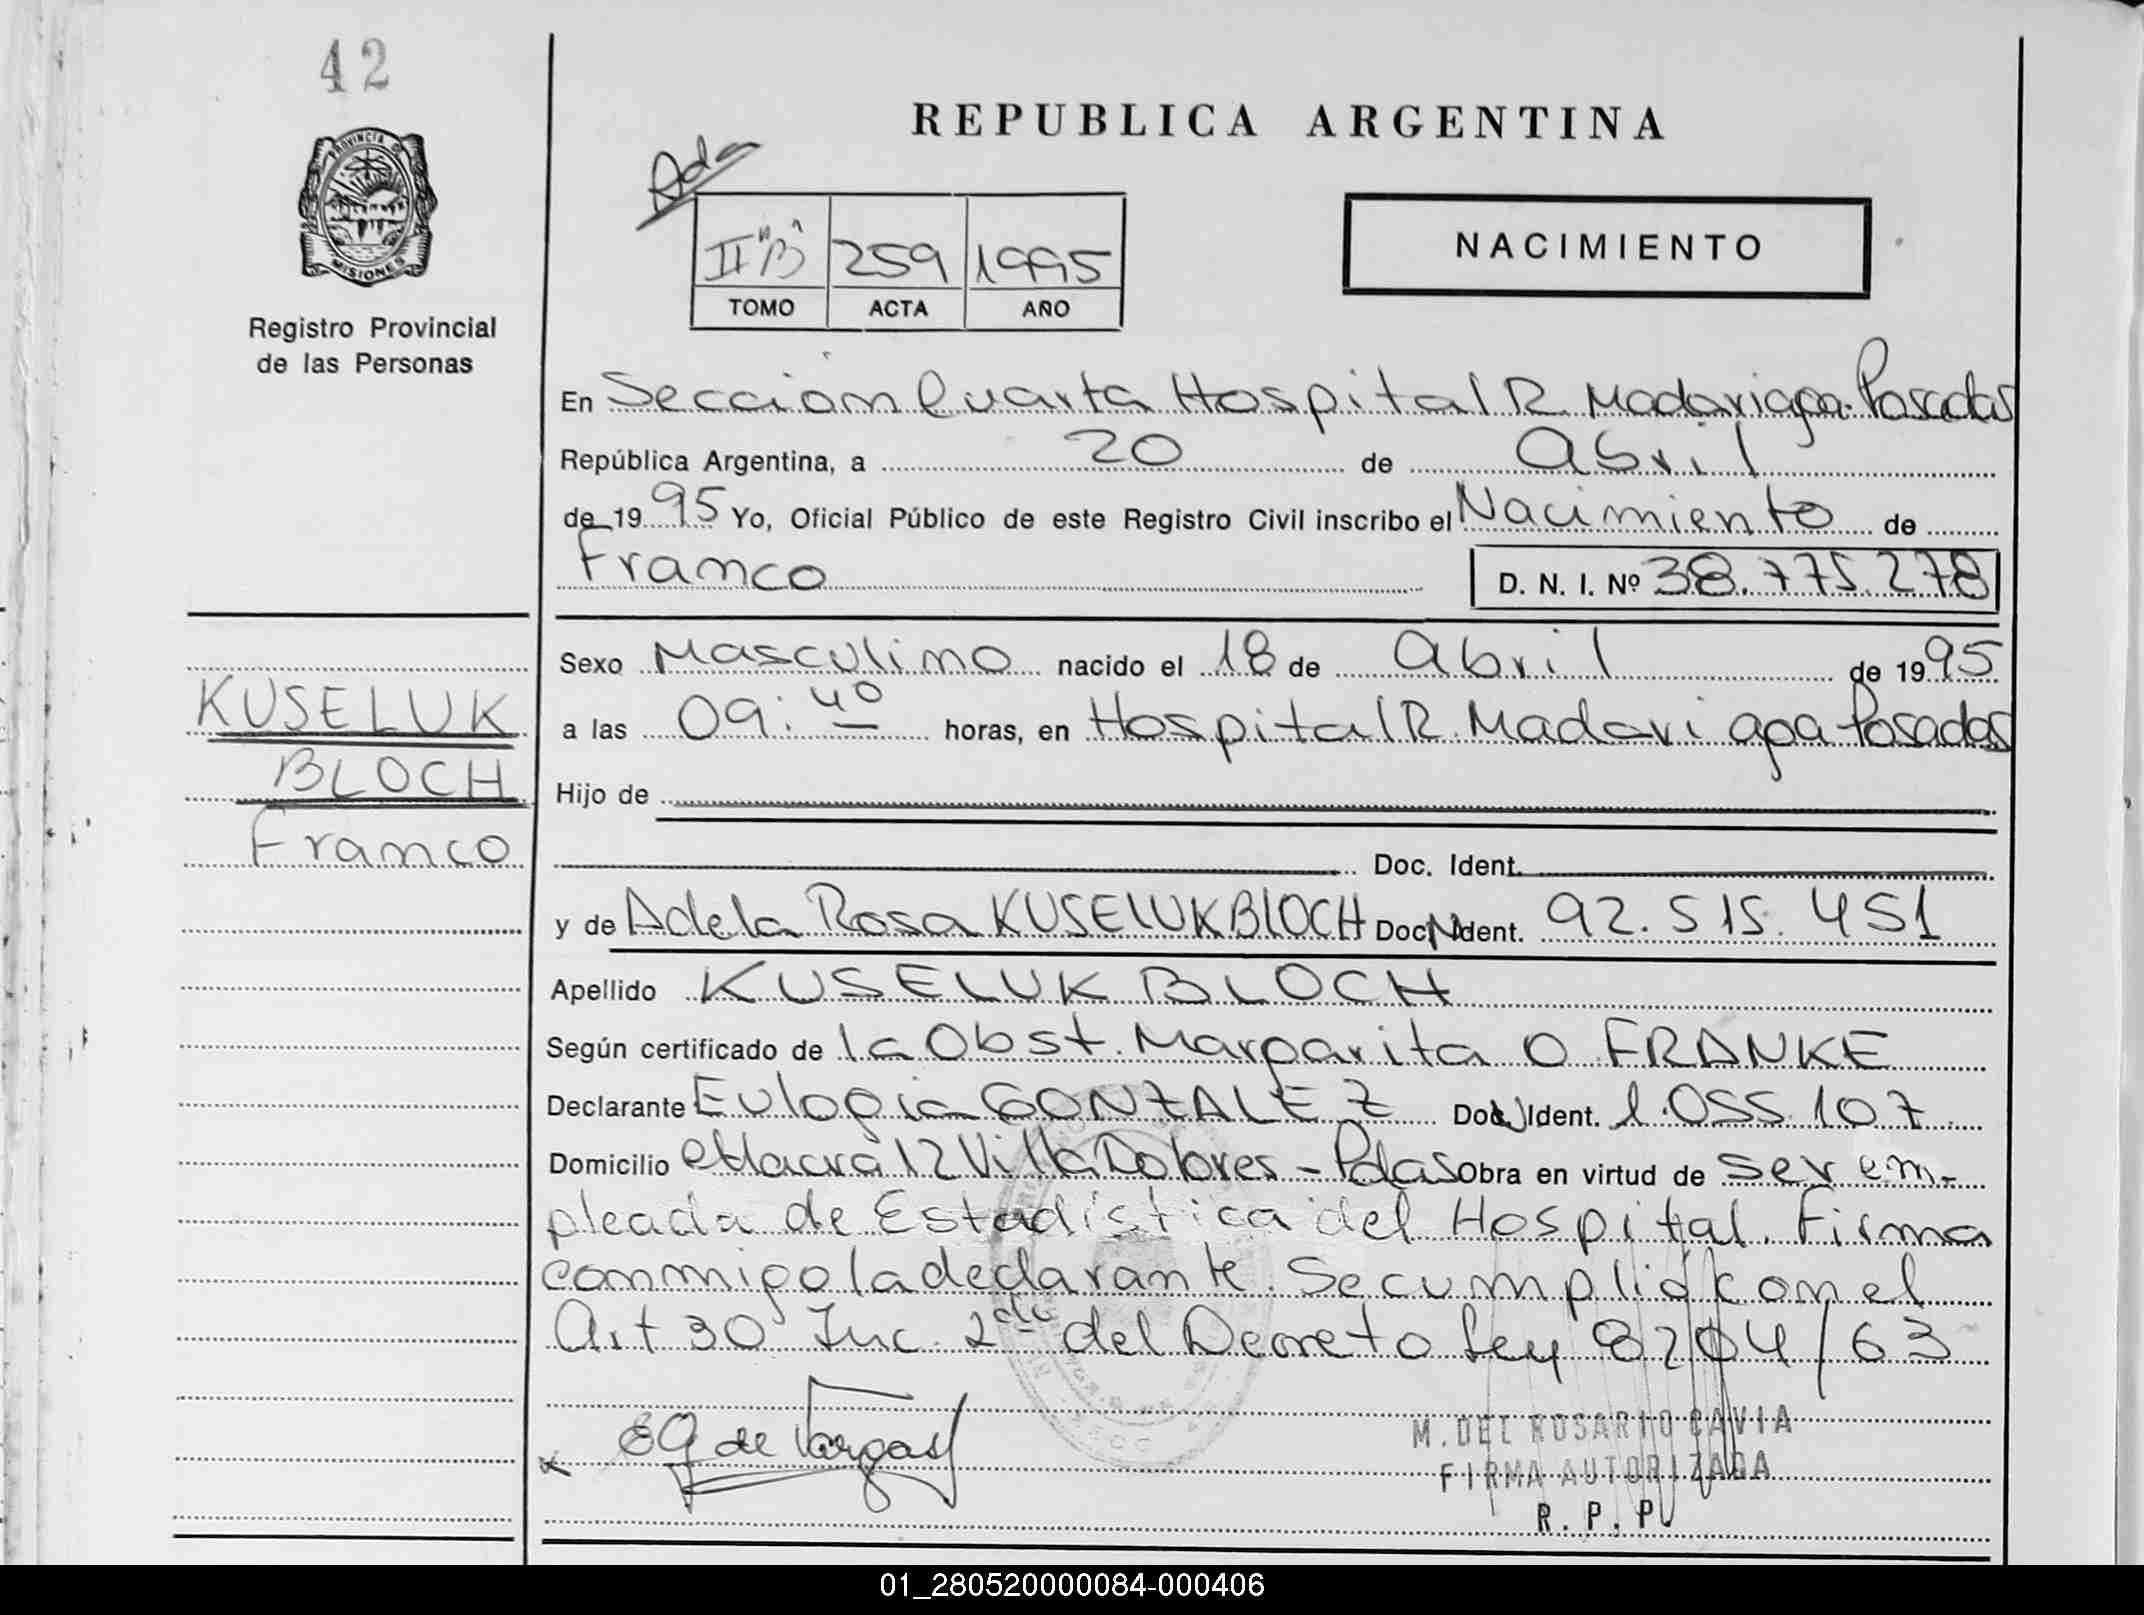 42
PROVINCIA D
MISIONES
Registro Provincial
de las Personas
KUSELUK
BLOCH
Franco
REPUBLICA ARGENTINA
Ada
II "B" 259 1995
TOMO ACTA AÑO
NACIMIENTO
En Sección Cuarta Hospital R. Madariaga-Posadas
República Argentina, a 20 de abril
de 1995 Yo, Oficial Público de este Registro Civil inscribo el Nacimiento de
Franco D. N. I. Nº 38.775.278
Sexo Masculino nacido el 18 de abril de 1995
a las 09:40 horas, en Hospital R. Madariaga Posadas
Hijo de
Doc. Ident.
y de Adela Rosa KUSELUK BLOCH Doc N Ident. 92.515.451
Apellido KUSELUK BLOCH
Según certificado de la Obst. Margarita O FRANKE
Declarante Eulogia GONZALEZ Doc N Ident. 1.055.107
Domicilio Chacra 12 Villa Dolores - Pdas Obra en virtud de ser em-
pleada de Estadística del Hospital. Firma
conmigo la declarante. Se cumplió con el
Art 30 Inc. 2do del Decreto Ley 8204/63
EG de Vargas
M. DEL ROSARIO CAVIA
FIRMA AUTORIZADA
R. P. P.
01_280520000084-000406